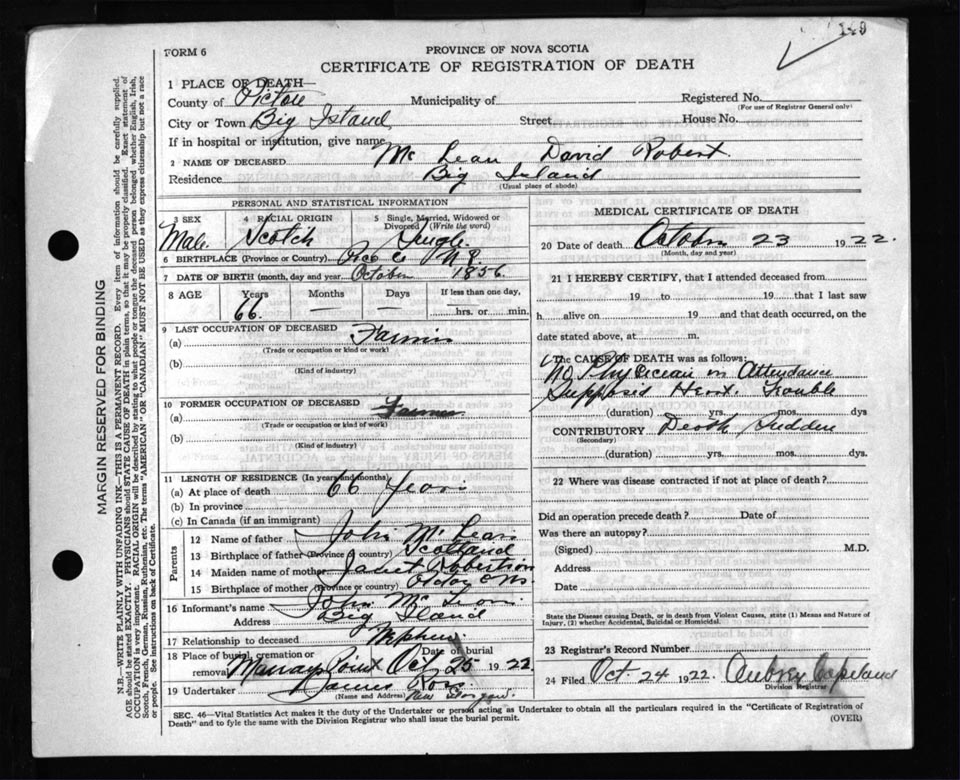 149
FORM 6
PROVINCE OF NOVA SCOTIA
CERTIFICATE OF REGISTRATION OF DEATH
1 PLACE OF DEATH—
County of Pictou Municipality of Registered No.
(For use of Registrar General only)
City or Town Big Island Street House No.
If in hospital or institution, give name
2 NAME OF DECEASED Mc Lean David Robert
Residence Big Island
(Usual place of abode)
PERSONAL AND STATISTICAL INFORMATION
3 SEX 4 RACIAL ORIGIN 5 Single, Married, Widowed or Divorced (Write the word)
Male. Scotch Single
6 BIRTHPLACE (Province or Country) Pico Co N S
7 DATE OF BIRTH (month, day and year) October 1856
8 AGE Years Months Days If less than one day,
66. — — hrs. or min.
9 LAST OCCUPATION OF DECEASED
(a) Farmer
(Trade or occupation or kind or work)
(b)
(Kind of industry)
10 FORMER OCCUPATION OF DECEASED
(a) Farmer
(Trade or occupation or kind or work)
(b)
(Kind of industry)
11 LENGTH OF RESIDENCE (In years and months)
(a) At place of death 66 Years
(b) In province
(c) In Canada (if an immigrant)
Parents
12 Name of father John Mc Lean
13 Birthplace of father (Province or country) Scotland
14 Maiden name of mother Janet Robertson
15 Birthplace of mother (Province or country)
16 Informant's name John Mc Lean
Address Big Island
17 Relationship to deceased Nephew
18 Place of burial, cremation or removal Date of burial
Murray Point Oct 25 1922
19 Undertaker James Ross
(Name and Address) New Glasgow.
MEDICAL CERTIFICATE OF DEATH
20 Date of death October 23 1922.
(Month, day and year)
21 I HEREBY CERTIFY, that I attended deceased from
19 to 19 that I last saw
h alive on 19 and that death occurred, on the
date stated above, at m.
The CAUSE OF DEATH was as follows:
No Physician on Attendance
Supposid Heart Trouble
(duration) yrs. mos. dys
CONTRIBUTORY Death Sudden
(Secondary)
(duration) yrs. mos. dys.
22 Where was disease contracted if not at place of death?
Did an operation precede death? Date of
Was there an autopsy?
(Signed) M.D.
Address
Date
State the Disease causing Death, or in death from Violent Causes, state (1) Means and Nature of
Injury, (2) whether Accidental, Suicidal or Homicidal.
23 Registrar's Record Number
24 Filed Oct. 24 1922. Aubrey Copeland
Division Registrar
SEC. 46—Vital Statistics Act makes it the duty of the Undertaker or person acting as Undertaker to obtain all the particulars required in the "Certificate of Registration of
Death" and to fyle the same with the Division Registrar who shall issue the burial permit.
(OVER)
MARGIN RESERVED FOR BINDING
N.B.—WRITE PLAINLY WITH UNFADING INK—THIS IS A PERMANENT RECORD. Every item of information should be carefully supplied.
AGE should be stated EXACTLY. PHYSICIANS should STATE CAUSE OF DEATH in plain terms, so that it may be properly classified. Exact statement of
OCCUPATION is very important. RACIAL ORIGIN will be described by stating to what people or tongue the deceased person belonged whether English, Irish,
Scotch, French, German, Russian, Ruthenian, etc. The terms "AMERICAN" or "CANADIAN" MUST NOT BE USED as they express citizenship but not a race
of people. See instructions on back of Certificate.